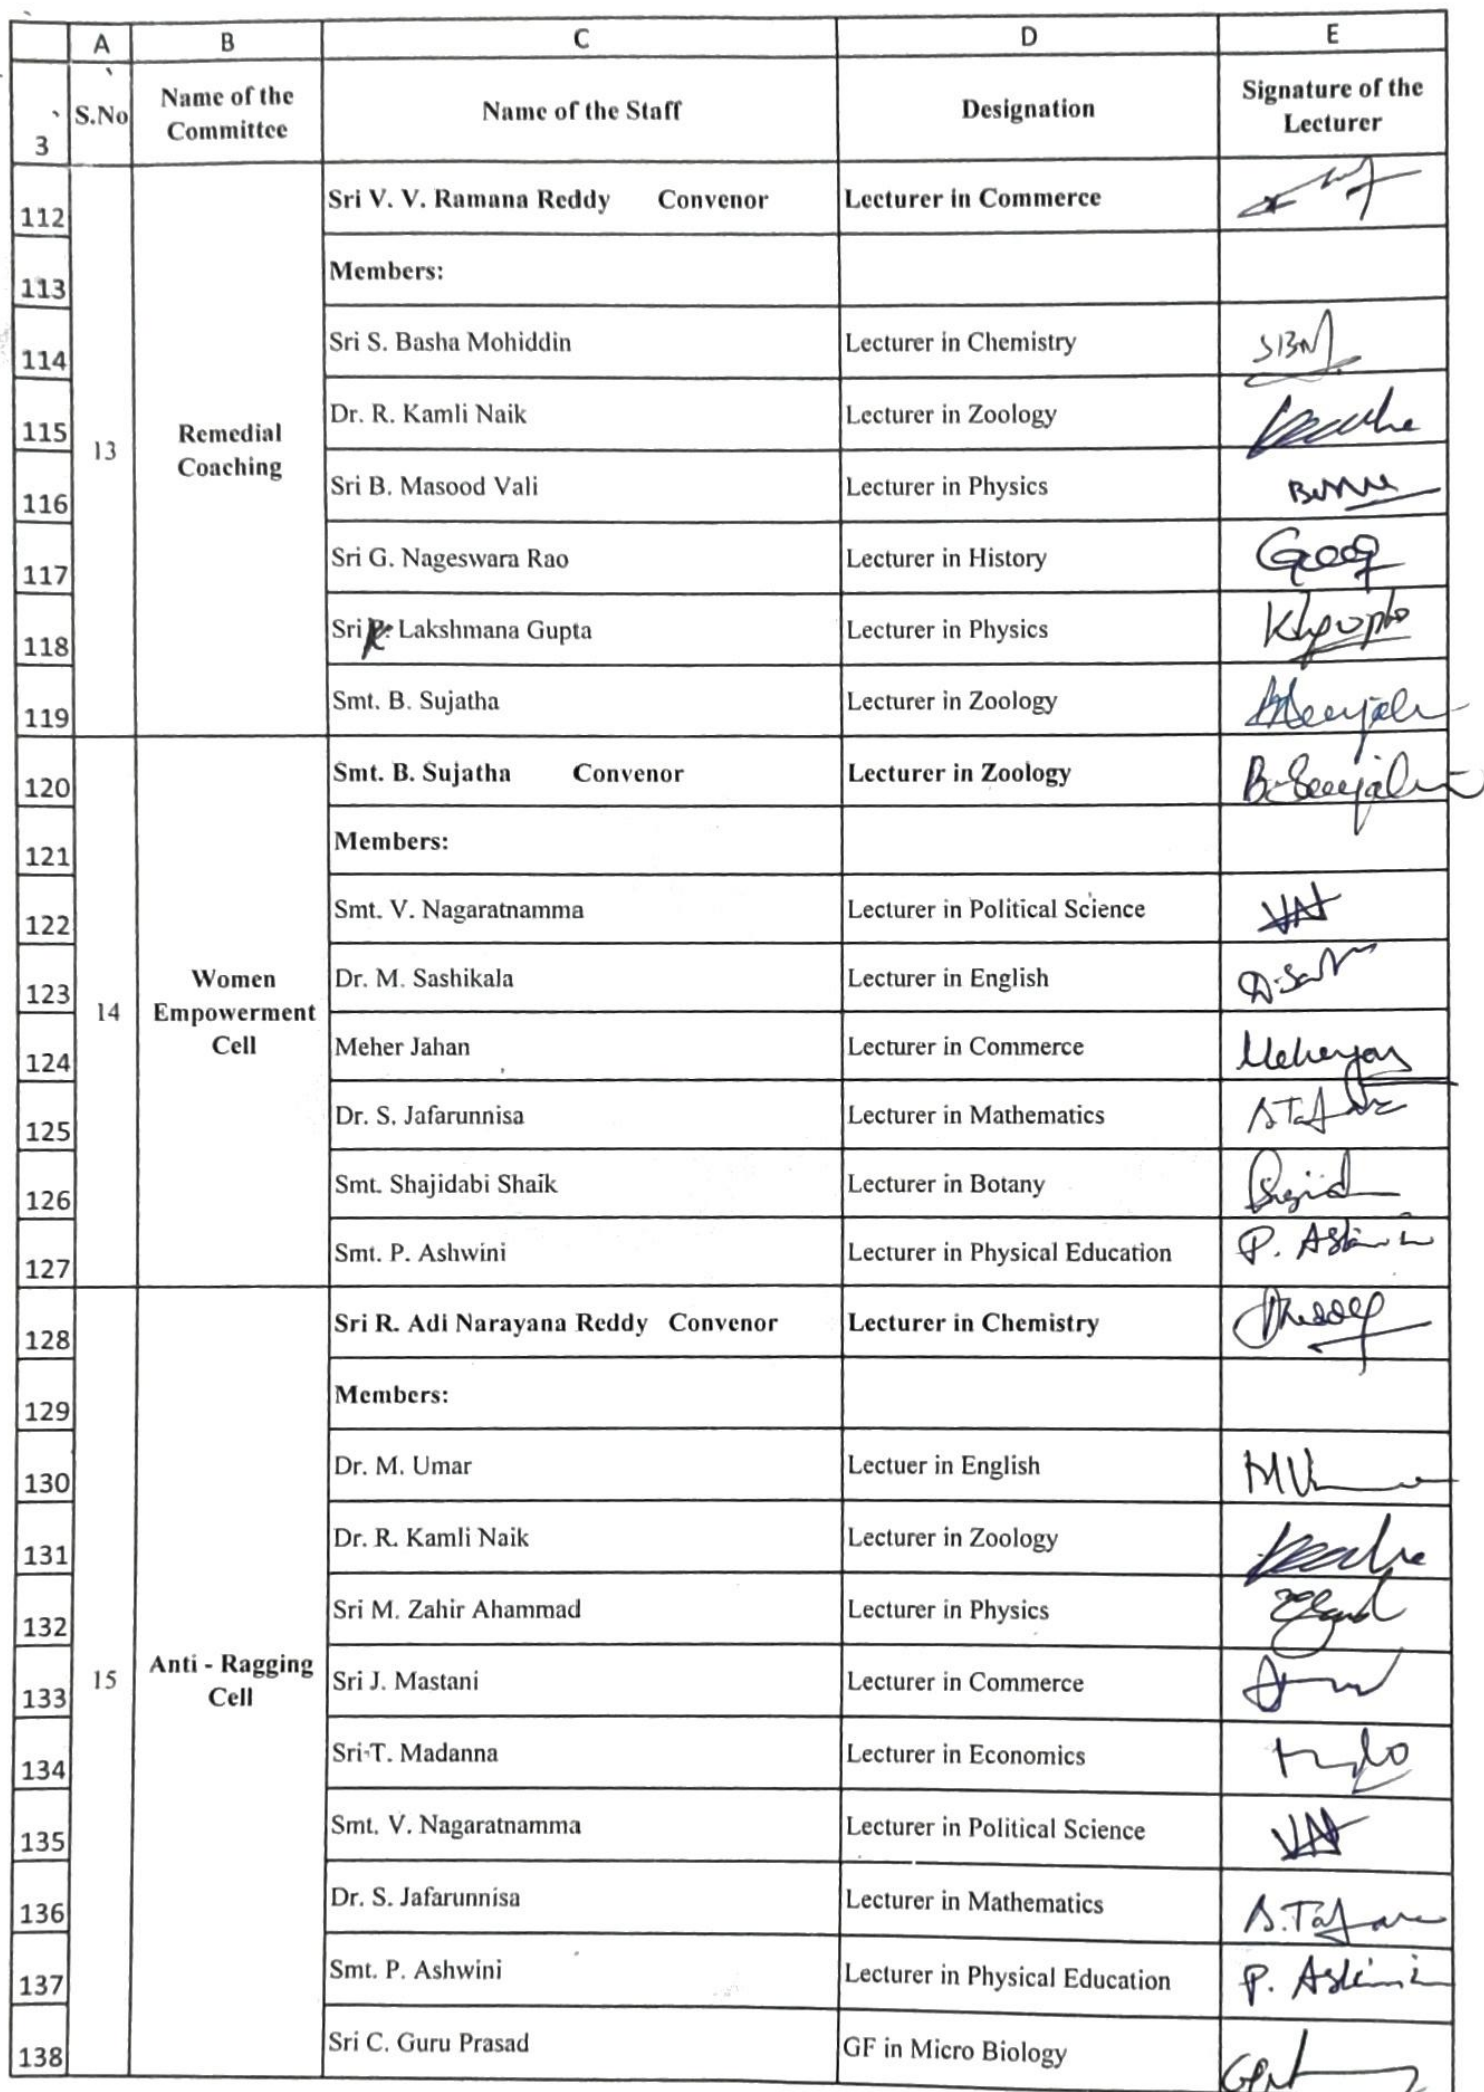 A B C D E
3 S.No Name of the Committee Name of the Staff Designation Signature of the Lecturer
112 Sri V. V. Ramana Reddy Convenor Lecturer in Commerce
113 Members:
114 Sri S. Basha Mohiddin Lecturer in Chemistry SBM
115 Dr. R. Kamli Naik Lecturer in Zoology
13 Remedial Coaching
116 Sri B. Masood Vali Lecturer in Physics
117 Sri G. Nageswara Rao Lecturer in History
118 Sri K. Lakshmana Gupta Lecturer in Physics
119 Smt. B. Sujatha Lecturer in Zoology
120 Smt. B. Sujatha Convenor Lecturer in Zoology
121 Members:
122 Smt. V. Nagaratnamma Lecturer in Political Science
123 Dr. M. Sashikala Lecturer in English
14 Women Empowerment Cell
124 Meher Jahan Lecturer in Commerce
125 Dr. S. Jafarunnisa Lecturer in Mathematics
126 Smt. Shajidabi Shaik Lecturer in Botany
127 Smt. P. Ashwini Lecturer in Physical Education
128 Sri R. Adi Narayana Reddy Convenor Lecturer in Chemistry
129 Members:
130 Dr. M. Umar Lectuer in English
131 Dr. R. Kamli Naik Lecturer in Zoology
132 Sri M. Zahir Ahammad Lecturer in Physics
15 Anti - Ragging Cell
133 Sri J. Mastani Lecturer in Commerce
134 Sri T. Madanna Lecturer in Economics
135 Smt. V. Nagaratnamma Lecturer in Political Science
136 Dr. S. Jafarunnisa Lecturer in Mathematics
137 Smt. P. Ashwini Lecturer in Physical Education
138 Sri C. Guru Prasad GF in Micro Biology